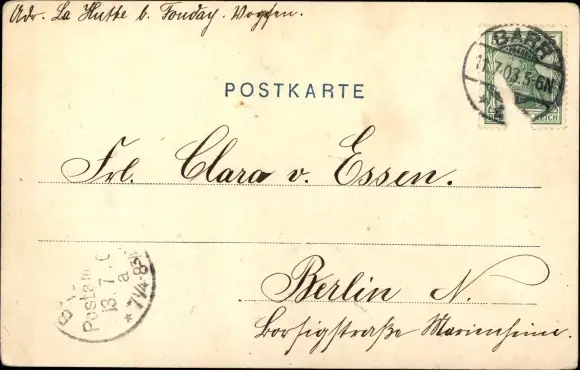 Adr. La Hutte b. Fouday. Vogesen.
BARR
11.7.03.5-6N
REICH
POSTKARTE
Frl. Clara v. Essen.
Berlin N.
Borsigstraße Marienheim.
Posta
13.7.0
a
* 7¼-8½